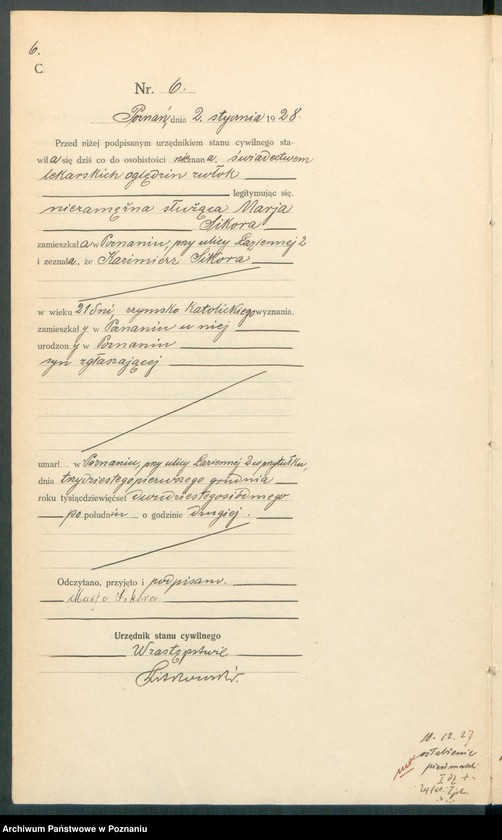 6.
C
Nr. 6.
Poznań, dnia 2. stycznia 1928.
Przed niżej podpisanym urzędnikiem stanu cywilnego sta-
wiła się dziś co do osobistości nieznana, świadectwem
lekarskich oględzin zwłok
legitymując się.
niezamężna służąca Marja
Sikora
zamieszkała w Poznaniu, przy ulicy Łaziennej 2
i zeznała, że Kazimierz Sikora
w wieku 21 dni, rzymsko katolickiego wyznania.
zamieszkały w Poznaniu u niej
urodzony w Poznaniu
syn zgłaszającej
umarł w Poznaniu, przy ulicy Łaziennej 2 w przytułku,
dnia trzydziestego pierwszego grudnia
roku tysiącdziewięćset dwudziestegosiódmego
po południu o godzinie drugiej.
Odczytano, przyjęto i podpisano.
Marja Sikora
Urzędnik stanu cywilnego
W zastępstwie
10.12.27
osłabienie
Archiwum Państwowe w Poznaniu